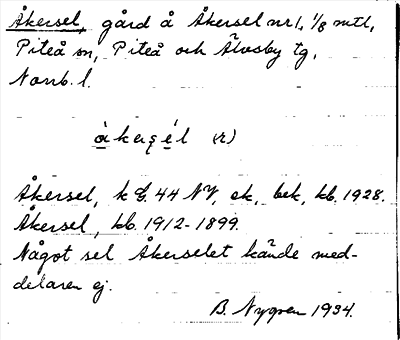 Åkersel, gård å Åkersel nr 1, 1/8 mtl,
Piteå sn, Piteå och Älvsby tg,
Norrb. l.
åkersél (r)
Åkersel, k G. 44 NV, ek, bek, kb. 1928.
Åkersel, kb. 1912-1899.
Något sel Åkerselet kände med-
delaren ej.
B. Nygren 1934.